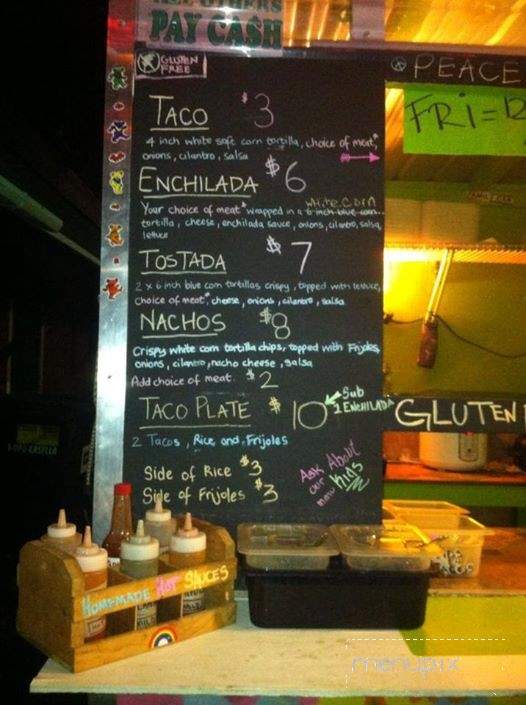 ALL OTHERS
PAY CA$H
GLUTEN
FREE
PEACE
FRI=
TACO $3
4 inch white soft corn tortilla, choice of meat,*
onions, cilantro, salsa
ENCHILADA $6
white corn
Your choice of meat* wrapped in a 6 inch blue corn
tortilla, cheese, enchilada sauce, onions, cilantro, salsa,
lettuce
TOSTADA $7
2 x 6 inch blue corn tortillas crispy, topped with lettuce,
choice of meat*, cheese, onions, cilantro, salsa
NACHOS $8
Crispy white corn tortilla chips, topped with Frijoles,
onions, cilantro, nacho cheese, salsa
Add choice of meat. $2
TACO PLATE $10
Sub
1 ENCHILADA
GLUTEN
2 Tacos, Rice and Frijoles
Side of Rice $3
Side of Frijoles $3
ASK ABOUT
our KIDS
menu
HOMEMADE HOT SAUCES
menupix